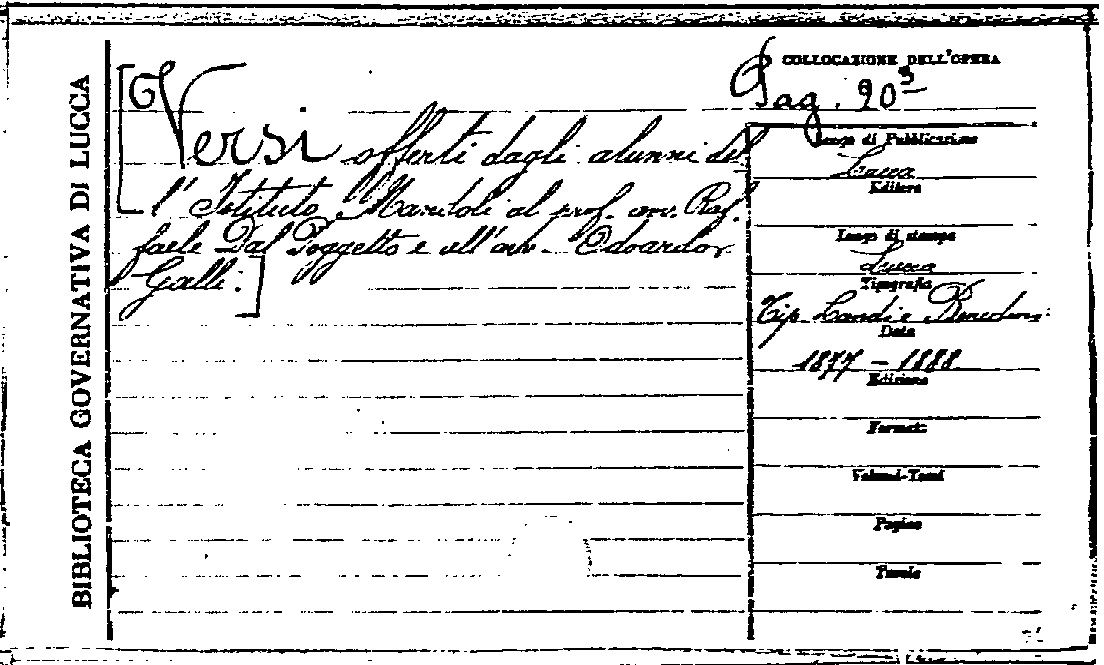 BIBLIOTECA GOVERNATIVA DI LUCCA
[Versi offerti dagli alunni del
l'Istituto al prof. avv. Raf-
faele Dal Poggetto e all'avv. Edoardo
Galli.]
COLLOCAZIONE DELL'OPERA
Pag. 90
Luogo di Pubblicazione
Lucca
Editore
Luogo di stampa
Lucca
Tipografia
Tip. Landi e
Data
1877 - 1888
Edizione
Formato
Volumi-Tomi
Pagine
Tavole